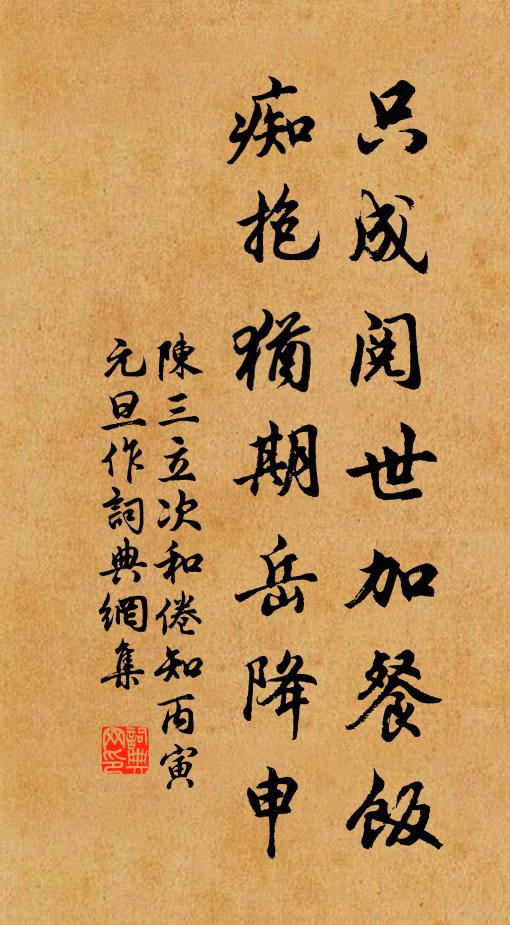 只成閱世加餐飯
痴抱猶期岳降申
陳三立次和倦知丙寅
元旦作詞典網集
詞典網印